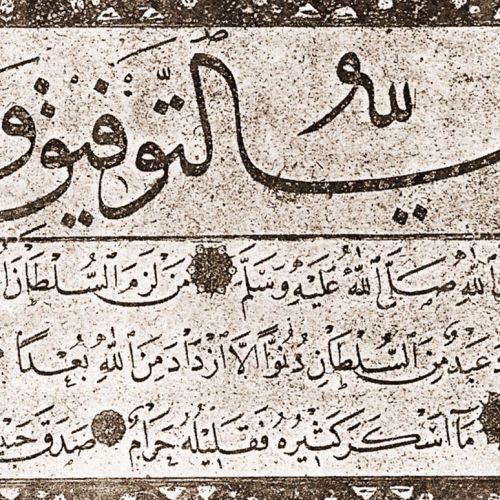 لله ولي التوفيق
الله صَلَّى اللهُ عَلَيْهِ وَسَلَّمَ مَنْ لَزِمَ السُّلْطَانَ
عَبْدٌ مِنَ السُّلْطَانِ دُنُوًّا اِلَّا ازْدَادَ مِنَ اللهِ بُعْدًا
مَا اَسْكَرَ كَثِيرُهُ فَقَلِيلُهُ حَرَامٌ صَدَقَ